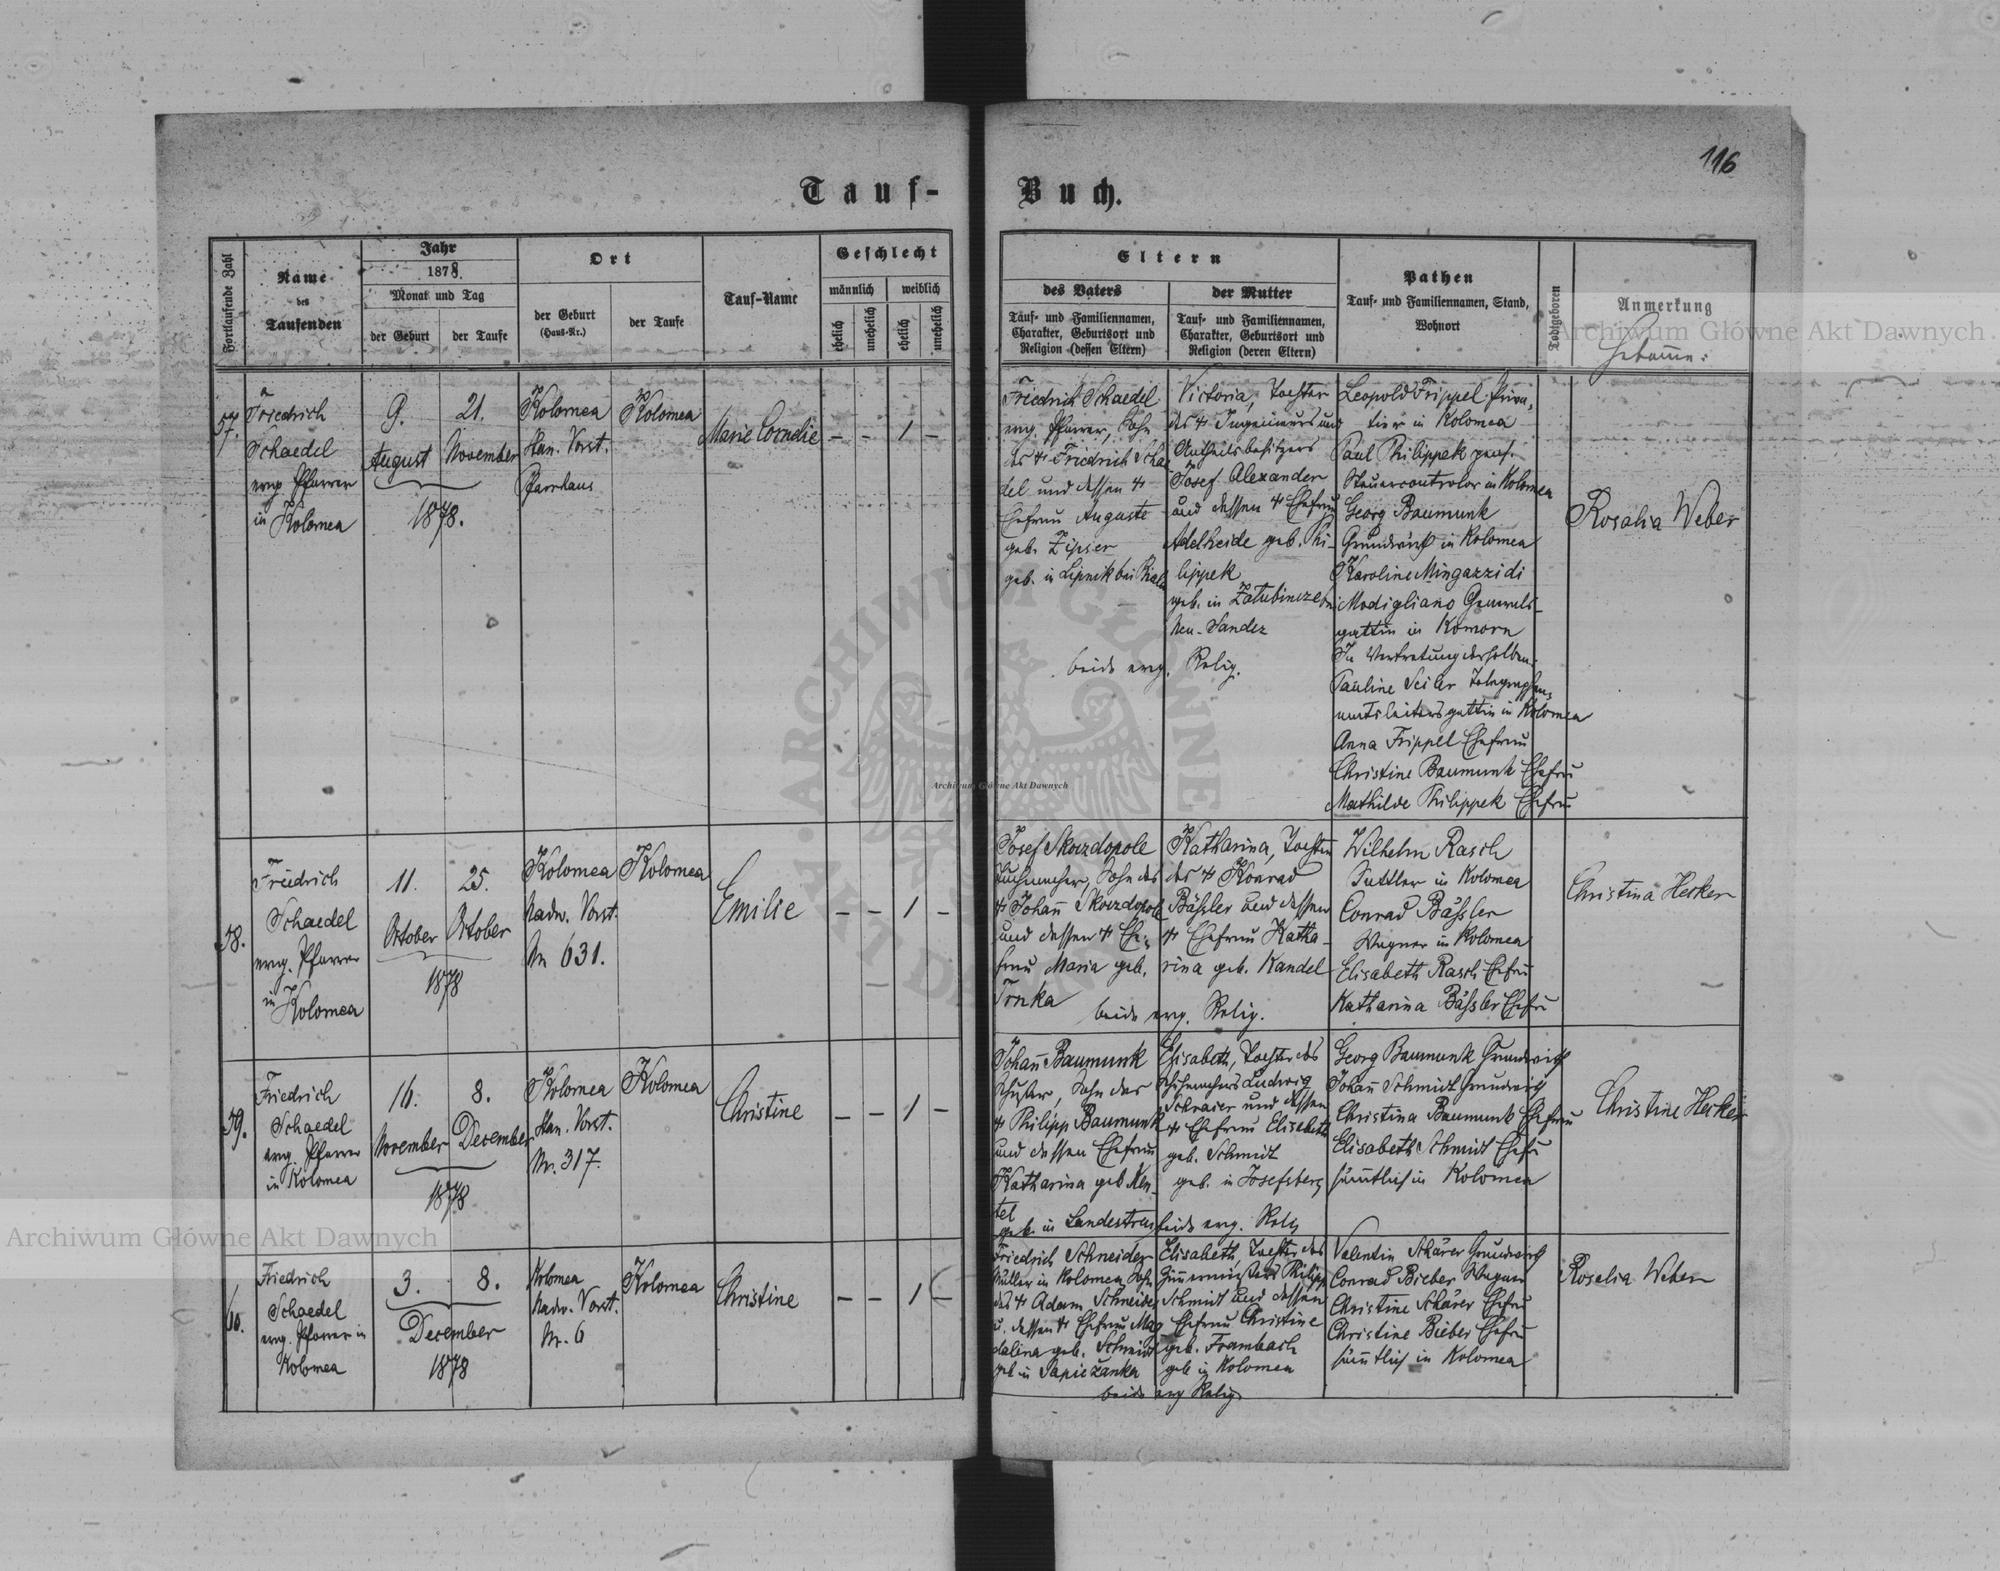 116
Tauf-Buch.
Fortlaufende Zahl
Name
des
Taufenden
Jahr
1878.
Monat und Tag
der Geburt
der Taufe
Ort
der Geburt
(Haus-Nr.)
der Taufe
Tauf-Name
Geschlecht
männlich
weiblich
ehelich
unehelich
ehelich
unehelich
Eltern
des Vaters
Tauf- und Familiennamen,
Charakter, Geburtsort und
Religion (dessen Eltern)
der Mutter
Tauf- und Familiennamen,
Charakter, Geburtsort und
Religion (deren Eltern)
Pathen
Tauf- und Familiennamen, Stand,
Wohnort
Todtgeboren
Anmerkung
Hebamme:
57.
Friedrich
Schaedel
evng. Pfarrer
in Kolomea
9.
August
21.
November
1878.
Kolomea
Stan. Vorst.
Pfarrhaus
Kolomea
Marie Cornelie
– – 1 –
Friedrich Schaedel
evng. Pfarrer, Sohn
des † Friedrich Schä-
del und dessen †
Ehefrau Auguste
geb. Zipser
geb. in Lipnik bei Biala
Victoria, Tochter
des † Ingenieurs und
Antheilsbesitzers
Josef Alexander
und dessen † Ehefrau
Adelheide geb. Phi-
lippek
geb. in Zalubincze bei
Neu-Sandez
beide evng. Relig.
Leopold Frippel Priva-
tier in Kolomea
Paul Philippek pens.
Steuercontrolor in Kolomea
Georg Baumunk
Grundwirt in Kolomea
Karoline Mingazzi di
Modigliano Generals-
gattin in Komorn
In Vertretung derselben:
Pauline Seiler Telegraphen-
amtsleitersgattin in Kolomea
Anna Frippel Ehefrau
Christine Baumunk Ehefrau
Mathilde Philippek Ehefrau
Rosalia Weber
58.
Friedrich
Schaedel
evng. Pfarrer
in Kolomea
11.
October
25.
October
1878
Kolomea
Nadw. Vorst.
Nr 631.
Kolomea
Emilie
– – 1 –
Josef Skorzdopole
Tuchmacher, Sohn des
† Johann Skorzdopole
und dessen † Ehe-
frau Maria geb.
Trnka
Katharina, Tochter
des † Konrad
Bäßler und dessen
† Ehefrau Katha-
rina geb. Kandel
beide evng. Relig.
Wilhelm Rasch
Sattler in Kolomea
Conrad Bäßler
Wagner in Kolomea
Elisabeth Rasch Ehefrau
Katharina Bäßler Ehefrau
Christina Herker
59.
Friedrich
Schaedel
evng. Pfarrer
in Kolomea
16.
November
8.
December
1878
Kolomea
Stan. Vorst.
Nr. 317.
Kolomea
Christine
– – 1 –
Johann Baumunk
Schuster, Sohn des
† Philipp Baumunk
und dessen Ehefrau
Katharina geb. Man-
tel
geb. in Landestreu
Elisabeth, Tochter des
Schuhmachers Ludwig
Schraier und dessen
† Ehefrau Elisabeth
geb. Schmidt
geb. in Josefsberg
beide evng. Relig
Georg Baumunk Grundwirth
Johann Schmidt Grundwirth
Christina Baumunk Ehefrau
Elisabeth Schmidt Ehefr
sämmtlich in Kolomea
Christine Herker
60.
Friedrich
Schaedel
evng. Pfarrer in
Kolomea
3.
8.
December
1878
Kolomea
Nadw. Vorst.
Nr. 6
Kolomea
Christine
– – 1 –
Friedrich Schneider
Müller in Kolomea, Sohn
des † Adam Schneider
u. dessen † Ehefrau Mag
dalina geb. Schmidt
geb in Sapiezanka
Elisabeth, Tochter des
Zimmermeisters Philipp
Schmidt und dessen
Ehefrau Christine
geb. Frambach
geb in Kolomea
beide evng Relig
Valentin Schärer Grundwirth
Conrad Bieber Wagner
Christine Schärer Ehefrau
Christine Bieber Ehefrau
sämmtlich in Kolomea
Rosalia Weber
Archiwum Główne Akt Dawnych
Archiwum Główne Akt Dawnych
Archiwum Główne Akt Dawnych
ARCHIWUM GŁÓWNE AKT DAWNYCH